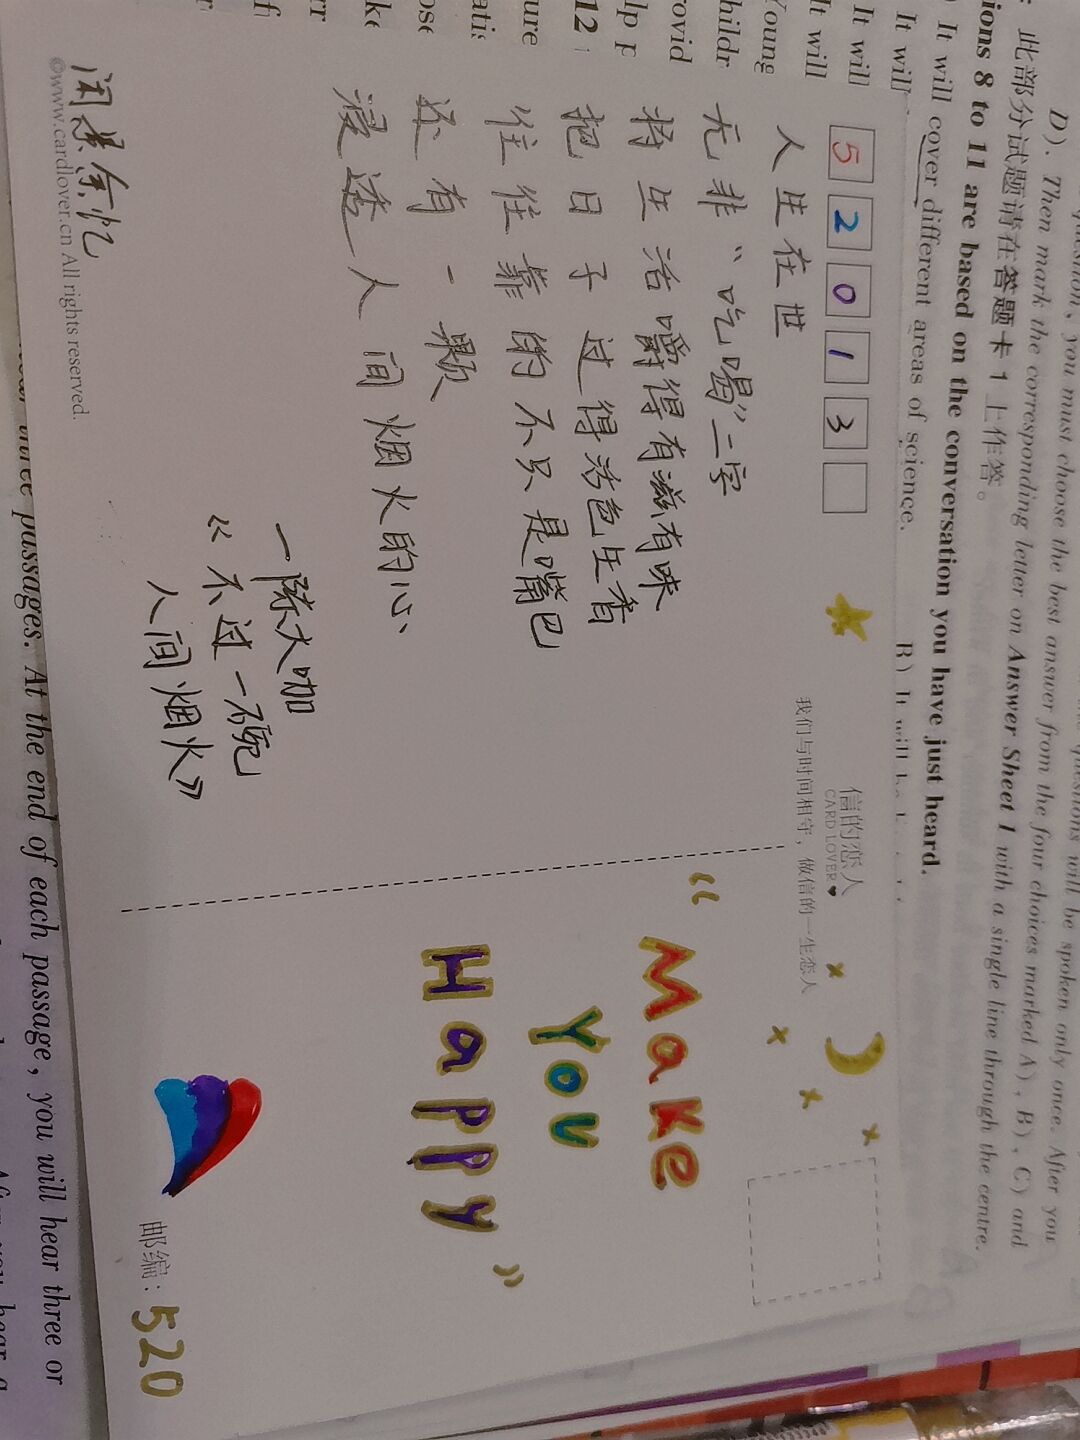 520 13
人生在世
无非“吃喝”二字
将生活嚼得有滋有味
把日子过得活色生香
往往靠的不只是嘴巴
还有一颗
浸透人间烟火的心
一陈大咖
《不过一碗
人间烟火》
©www.cardlover.cn All rights reserved.
信的恋人
CARD LOVER♥
我们与时间相守，做信的一生恋人
“Make
You
Happy”
邮编：520
question, you must choose the best answer from the four choices marked A), B), C) and
D). Then mark the corresponding letter on Answer Sheet 1 with a single line through the centre.
此部分试题请在答题卡1上作答。
ions 8 to 11 are based on the conversation you have just heard.
It will cover different areas of science.
It will
It will
It will
Young
childr
rovid
lp p
12
ure
three passages. At the end of each passage, you will hear three or